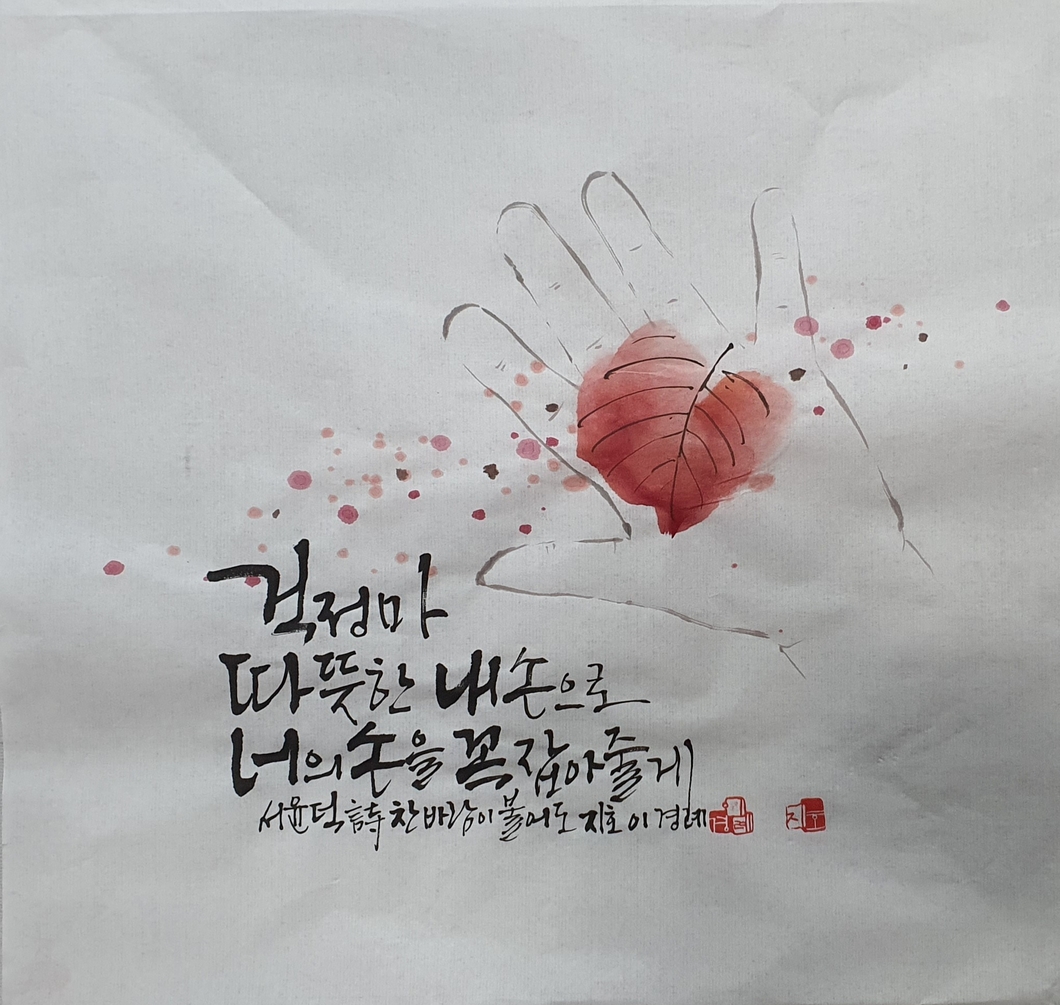 걱정마
따뜻한 내손으로
너의 손을 꼭 잡아줄게
서윤덕 詩 찬바람이 불어도 지호 이경례
이경례
지호